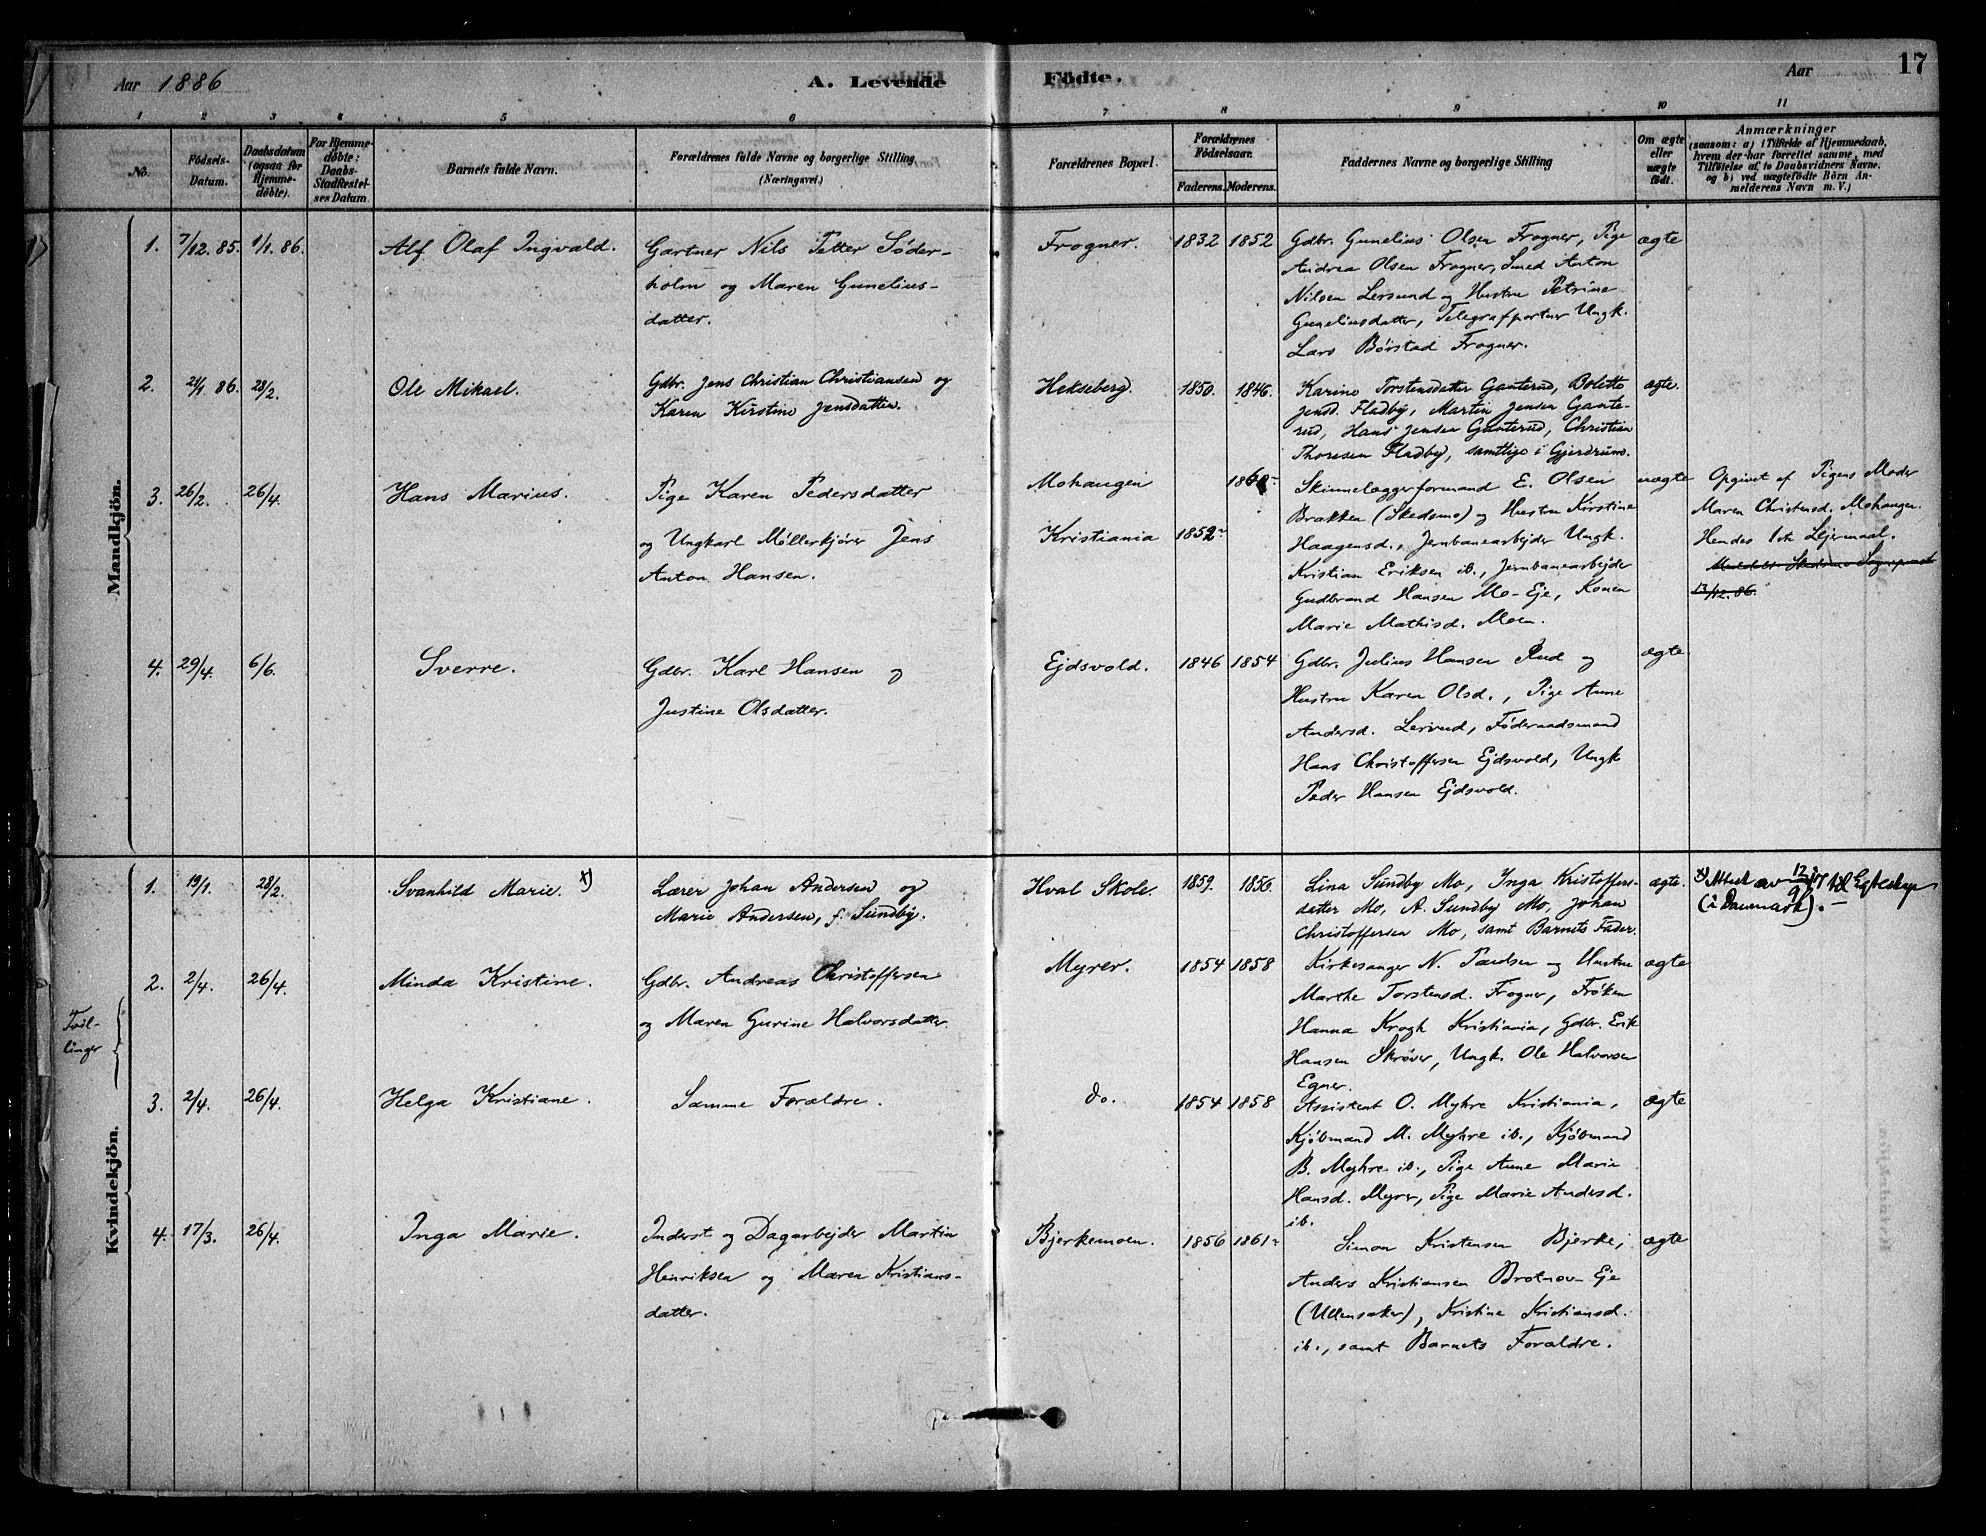 Aar 1886
A. Levende
Födte.
Aar
17
1
2
3
4
5
6
7
8
9
10
11
No.
Födsels-
Datum.
Daabsdatum
(ogsaa for
Hjemme-
döbte).
For Hjemme-
döbte:
Daabs-
Stadfæstel-
ses Datum
Barnets fulde Navn.
Forældrenes fulde Navne og borgerlige Stilling
(Næringsvei.)
Forældrenes Bopæl.
Forældrenes
Födselsaar.
Faderens.
Moderens.
Faddernes Navne og borgerlige Stilling
Om ægte
eller
uægte
födt.
Anmærkninger
(saasom: a) i Tilfælde af Hjemmedaab,
hvem der har forrettet samme, med
Tilföielse af to Daabsvidners Navne.
og b) ved uægtefödte Börn An-
melderens Navn m. V.)
Mandkjön.
1. 7/12. 85. 1/1. 86. Alf Olaf Ingvald.
Gartner Nils Petter Søder-
holm og Maren Gunelius-
datter.
Frogner. 1832 1852
Gdbr. Gunelius Olsen Frogner, Pige
Andrea Olsen Frogner, Smed Anton
Nilsen Lersund og Hustru Petrine
Guneliusdatter, Telegrafportner Ungk.
Lars Børstad Frogner.
ægte
2. 21/1 86. 28/2. Ole Mikael.
Gdbr. Jens Christian Christiansen og
Karen Kirstine Jensdatter.
Hekseberg. 1850. 1846.
Karine Torstensdatter Ganterud, Bolette
Jensd. Fladby, Martin Jensen Gante-
rud, Hans Jensen Ganterud, Christian
Thoresen Fladby, samtlige i Gjerdrum.
ægte.
3. 26/2. 26/4. Hans Marius.
Pige Karen Pedersdatter
og Ungkarl Møllerkjører Jens
Anton Hansen.
Mohaugen
Kristiania 1852
Skinnelæggerformand E. Olsen
Brakken (Skedsmo) og Hustru Kirstine
Haagensd., Jernbanearbejder Ungk.
Kristian Eriksen ib., Jernbanearbejder
Gudbrand Hansen Mo-Eje, Konen
Marie Mathisd. Moen.
uægte
Opgivet af Pigens Moder
Maren Christensd. Mohaugen.
Hendes 1ste Lejermaal.
Meddelt Skedsmo Sogneprest
13/12. 86.
4. 29/4. 6/6. Sverre.
Gdbr. Karl Hansen og
Justine Olsdatter.
Ejdsvold. 1846 1854
Gdbr. Julius Hansen Rud og
Hustru Karen Olsd., Pige Anne
Andersd. Lerud, Føderaadsmand
Hans Christoffersen Ejdsvold, Ungk.
Peder Hansen Ejdsvold.
ægte
Kvindekjön.
1. 19/1. 28/2. Svanhild Marie. x)
Lærer Johan Andersen og
Marie Andersen, f. Sundby.
Hval Skole. 1859. 1856.
Lina Sundby Mo, Inga Kristoffers-
datter Mo, A. Sundby Mo, Johan
Christoffersen Mo, samt Barnets Fader.
ægte.
x) Attest av 12/9 17 til Egteskap
(i Danmark). —
Tvil-
linger
2. 2/4. 26/4. Minda Kristine.
Gdbr. Andreas Christoffersen
og Maren Gurine Halvorsdatter.
Myrer. 1854 1858
Kirkesanger N. Paulsen og Hustru
Marthe Torstensd. Frogner, Frøken
Hanna Krogh Kristiania, Gdbr. Erik
Hansen Skrøver, Ungk. Ole Halvorsen
Egner.
ægte
3. 2/4. 26/4. Helga Kristiane.
Samme Forældre.
do. 1854 1858
Assistent O. Myhre Kristiania,
Kjøbmand M. Myhre ib., Kjøbmand
B. Myhre ib., Pige Anne Marie
Hansd. Myrer, Pige Marie Andersd.
ib.
ægte
4. 17/3. 26/4. Inga Marie.
Inderst og Dagarbejder Martin
Henriksen og Maren Kristians-
datter.
Bjerkemoen. 1856 1861
Simon Kristensen Bjerke,
Anders Kristiansen Brotnov-Eje
(Ullensaker), Kristine Kristiansd.
ib., samt Barnets Forældre.
ægte